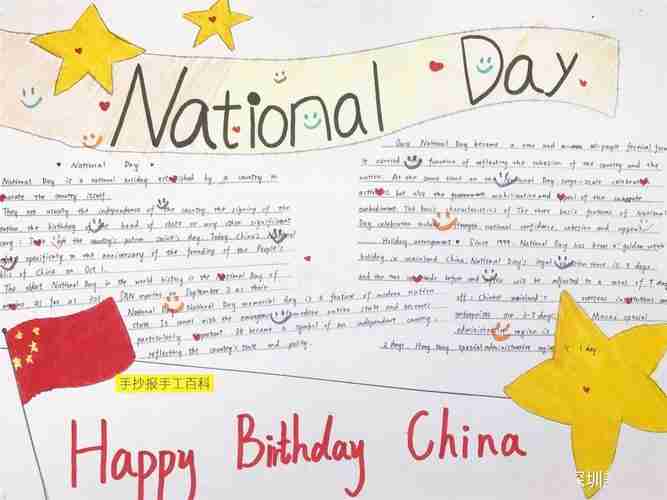 National Day
National Day
National Day is a national holiday established by a country to
the country itself.
They are usually the independence of the country, the signing of the
the birthday head of state or any other significant
the country's patron saint's day. Today, China's
specifically to the anniversary of the founding of the People's
of China on Oct 1.
The oldest National Day in the world history is the National Day of
as far as SAN September 3 as their
National National Day memorial day is a feature of modern nation
state. It comes with the emergence modern nation state and becomes
particularly important. It became a symbol of an independent country,
reflecting the country's state and polity.
National Day became a new and people festival form,
it carried function of reflecting the cohesion of the country and the
nation. At the same time on National Day, large-scale celebrate
but also the government mobilization and of the concrete
embodiment. The basic characteristics of the three basic features of National
Day celebration strength, national confidence, cohesion and appeal
Holiday arrangement Since 1999, National Day has been a "golden week"
holiday in mainland China, National Day's legal time is 3 days,
and the two weekends before and after will be adjusted to a total of 7
Chinese mainland overseas
enterprises are 3-7 days Macao special
administrative region is
2 days, Hong Kong special administrative region is 1 day.
手抄报手工百科
Happy Birthday China